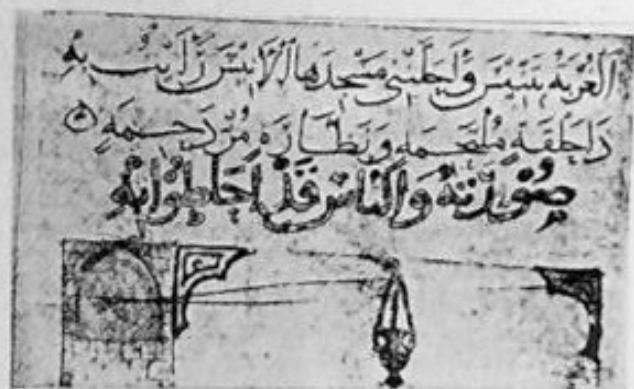 الغربه بتنيس واحلتنى مسجدها الانيس رايت به
ذا حلقه ملتحمه ونظاره مزدحمه
صورته والناس قد احاطوا به